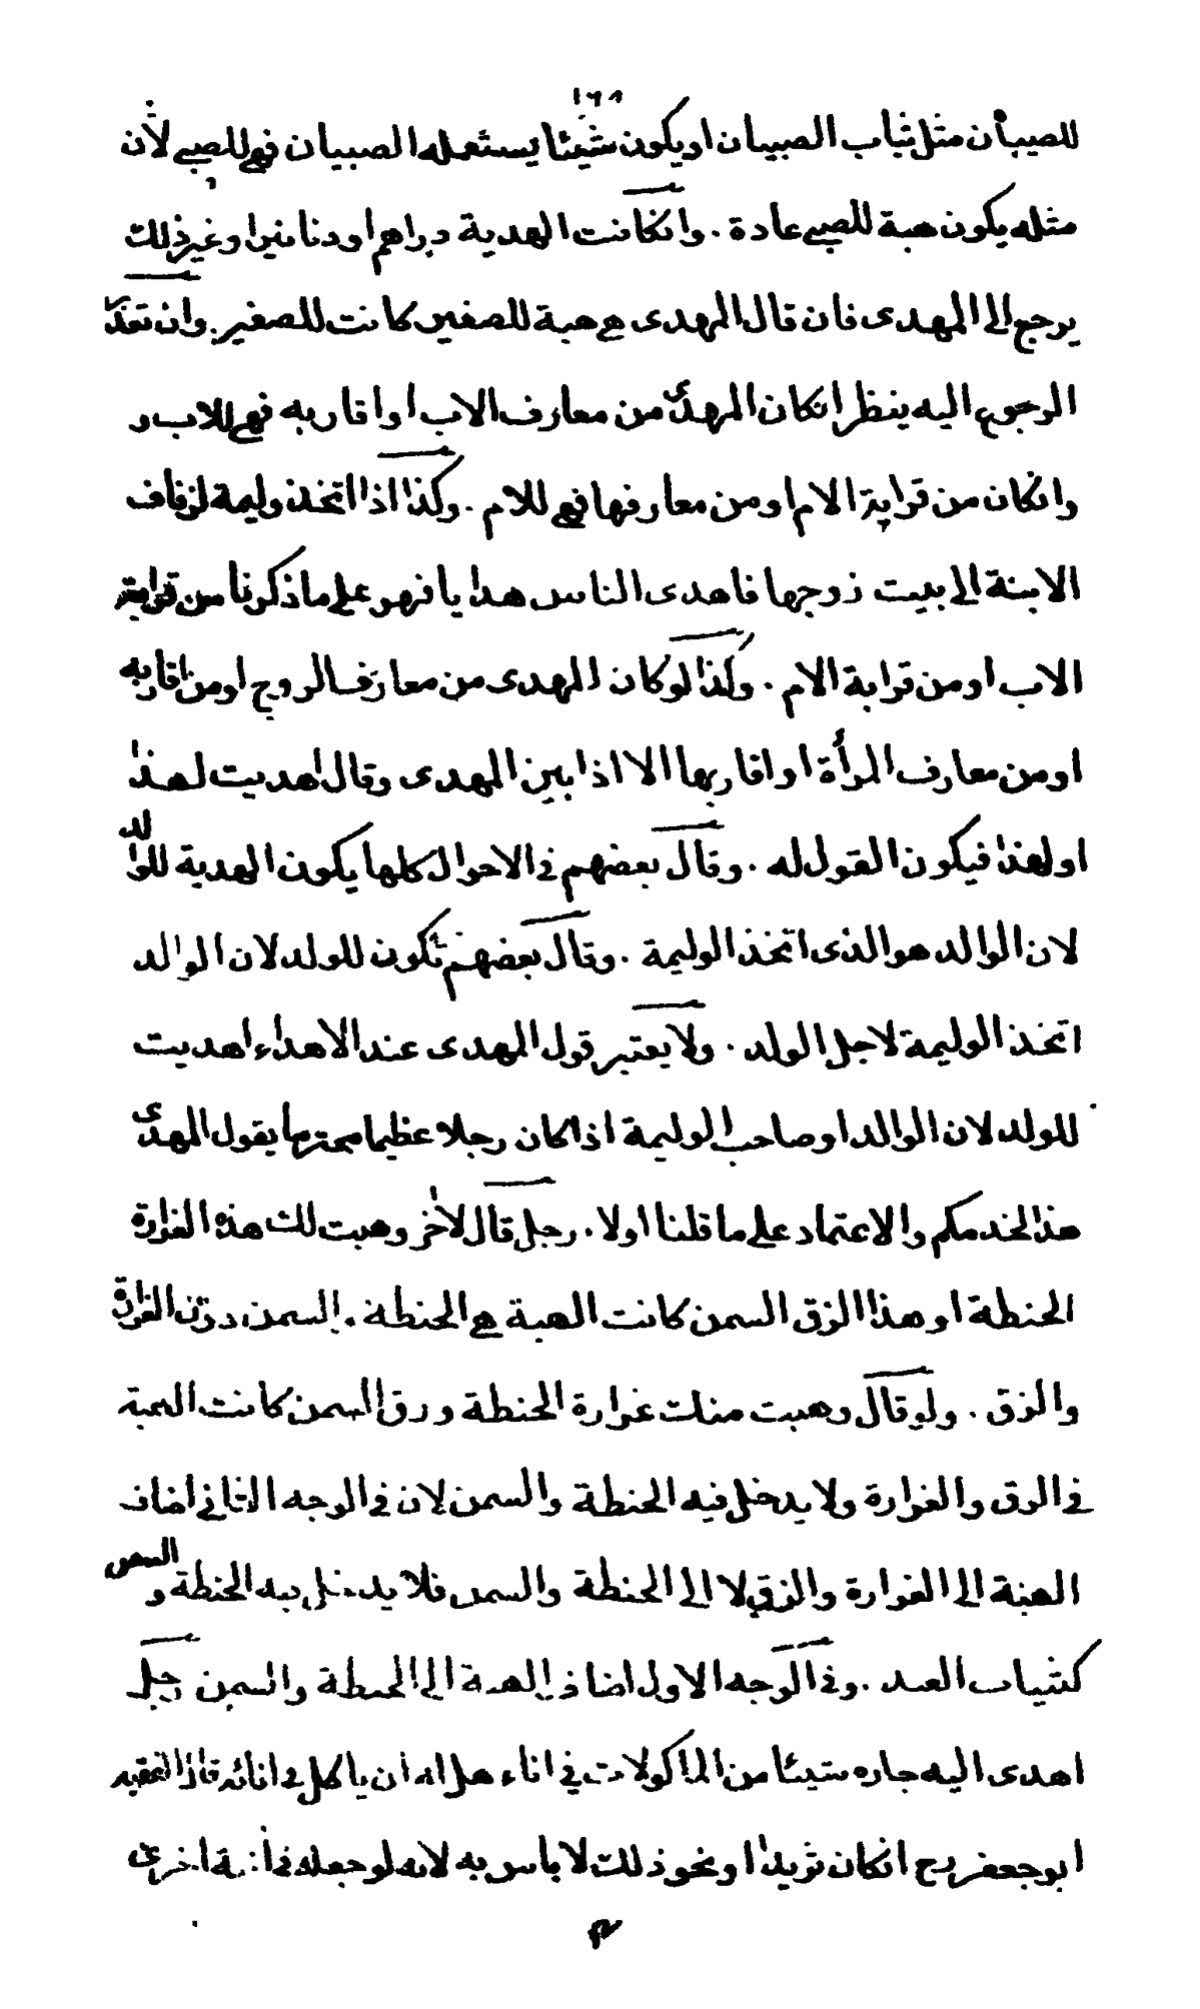 ١٦٨
للصبيان مثل ثياب الصبيان او يكون شيئا يستعمله الصبيان فهى للصبى لأن
مثله يكون هبة للصبى عادة . وانكانت الهدية دراهم او دنانير او غير ذلك
يرجع الى المهدى فان قال المهدى هى هبة للصغير كانت للصغير . وان تعذر
الرجوع اليه ينظر انكان المهدى من معارف الاب او اقاربه فهى للاب و
وانكان من قرابة الام او من معارفها فهى للام . وكذا اذا اتخذ وليمة لزفاف
الابنة الى بيت زوجها فاهدى الناس هدايا فهو على ما ذكرنا من قرابة
الاب او من قرابة الام . وكذا لو كان المهدى من معارف الزوج او من اقاربه
او من معارف المرأة او اقاربها الا اذا بين المهدى وقال اهديت لهذا
او لهذا فيكون القول له . وقال بعضهم فى الاحوال كلها يكون الهدية للوالد
لان الوالد هو الذى اتخذ الوليمة . وقال بعضهم تكون للولد لان الوالد
اتخذ الوليمة لاجل الولد . ولا يعتبر قول المهدى عند الاهداء اهديت
للولد لان الوالد او صاحب الوليمة اذا كان رجلا عظيما محترما يقول المهدى
هذا لخدمكم والاعتماد على ما قلنا اولا . رجل قال لآخر وهبت لك هذه الغرارة
الحنطة او هذا الزق السمن كانت الهبة هى الحنطة والسمن دون الغرارة
والزق . ولو قال وهبت منك غرارة الحنطة وزق السمن كانت الهبة
فى الزق والغرارة ولا يدخل فيه الحنطة والسمن لان فى الوجه الثانى اضاف
الهبة الى الغرارة والزق لا الى الحنطة والسمن فلا يدخل فيه الحنطة و السمن
كثياب العبد . وفى الوجه الاول اضاف الهبة الى الحنطة والسمن رجل
اهدى اليه جاره شيئا من المأكولات فى اناء هل له ان ياكل فى انائه قال الفقيه
ابو جعفر رح انكان ثريدا او نحو ذلك لا باس به لانه لو جعله فى آنية اخرى